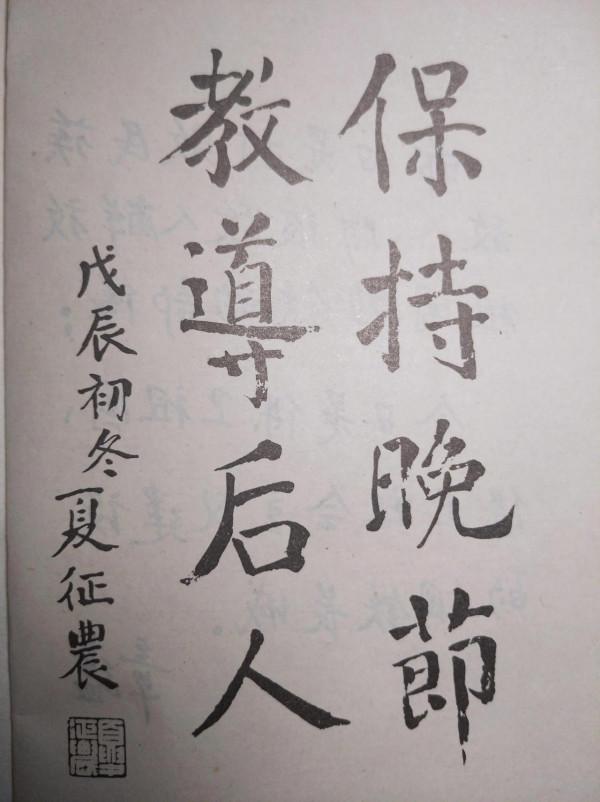 保持晚節
教導后人
戊辰初冬夏征農